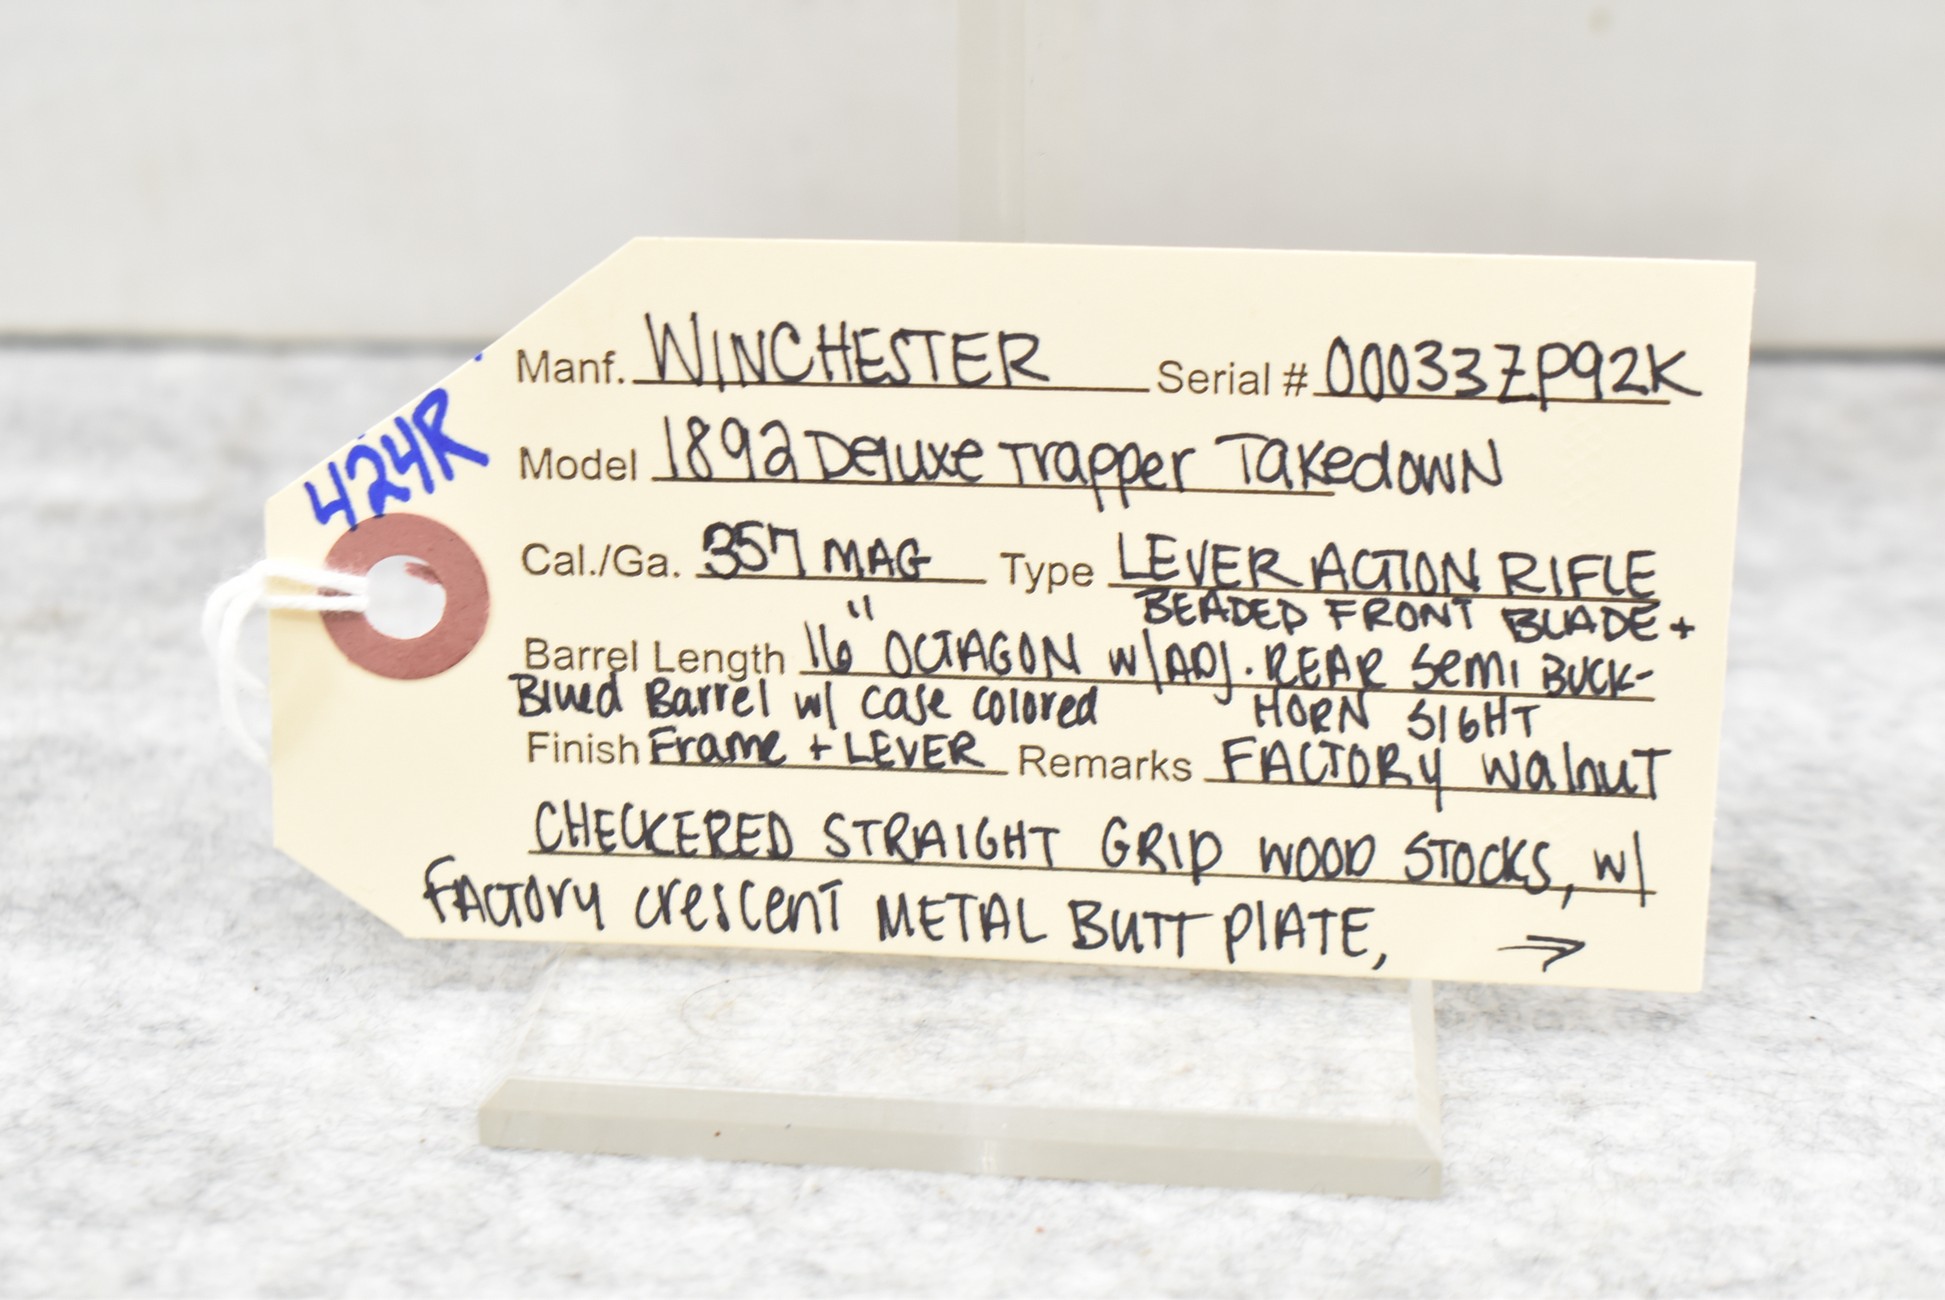 424R
Manf. WINCHESTER Serial # 00033ZP92K
Model 1892 Deluxe Trapper Takedown
Cal./Ga. 357 MAG Type LEVER ACTION RIFLE
BEADED FRONT BLADE +
Barrel Length 16" OCTAGON w/ADJ. REAR Semi BUCK-
Blued Barrel w/ case colored HORN SIGHT
Finish Frame + LEVER Remarks FACTORY walnut
CHECKERED STRAIGHT GRIP WOOD STOCKS, w/
FACTORY crescent METAL BUTT PLATE, →